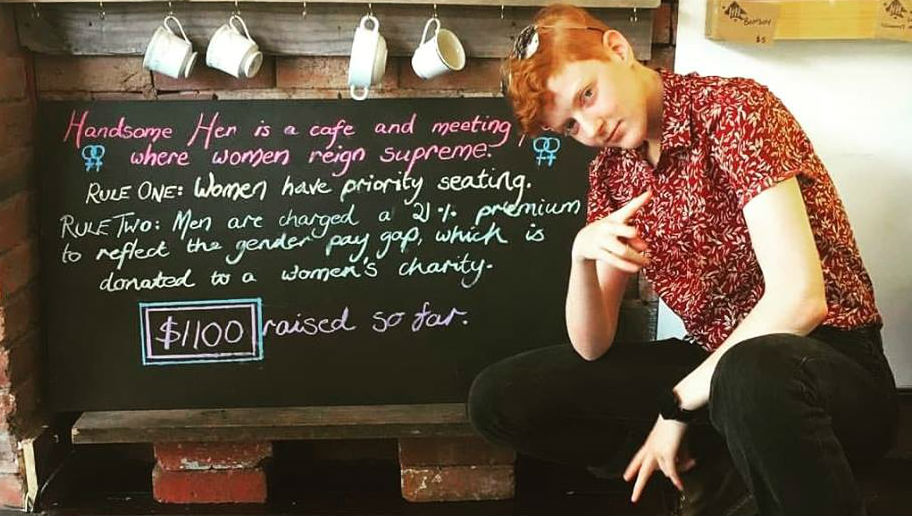 Handsome Her is a cafe and meeting
where women reign supreme.
RULE ONE: Women have priority seating.
RULE TWO: Men are charged a 21% premium
to reflect the gender pay gap, which is
donated to a women's charity.
$1100 raised so far.